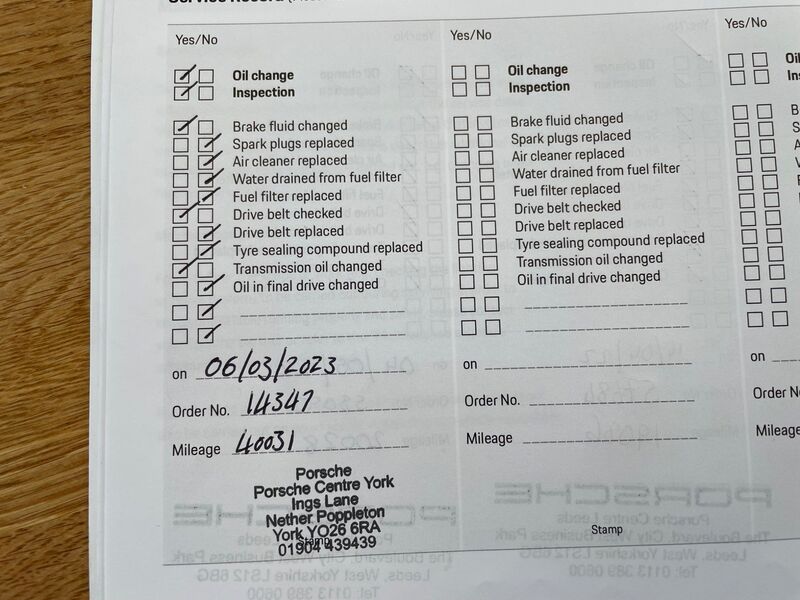 Service Record
Yes/No
Oil change
Inspection
Brake fluid changed
Spark plugs replaced
Air cleaner replaced
Water drained from fuel filter
Fuel filter replaced
Drive belt checked
Drive belt replaced
Tyre sealing compound replaced
Transmission oil changed
Oil in final drive changed
on 06/03/2023
Order No. 14347
Mileage 40031
Porsche
Porsche Centre York
Ings Lane
Nether Poppleton
York YO26 6RA
Stamp
01904 439439
Yes/No
Oil change
Inspection
Brake fluid changed
Spark plugs replaced
Air cleaner replaced
Water drained from fuel filter
Fuel filter replaced
Drive belt checked
Drive belt replaced
Tyre sealing compound replaced
Transmission oil changed
Oil in final drive changed
on
Order No.
Mileage
Stamp
Yes/No
on
Order N
Mileage